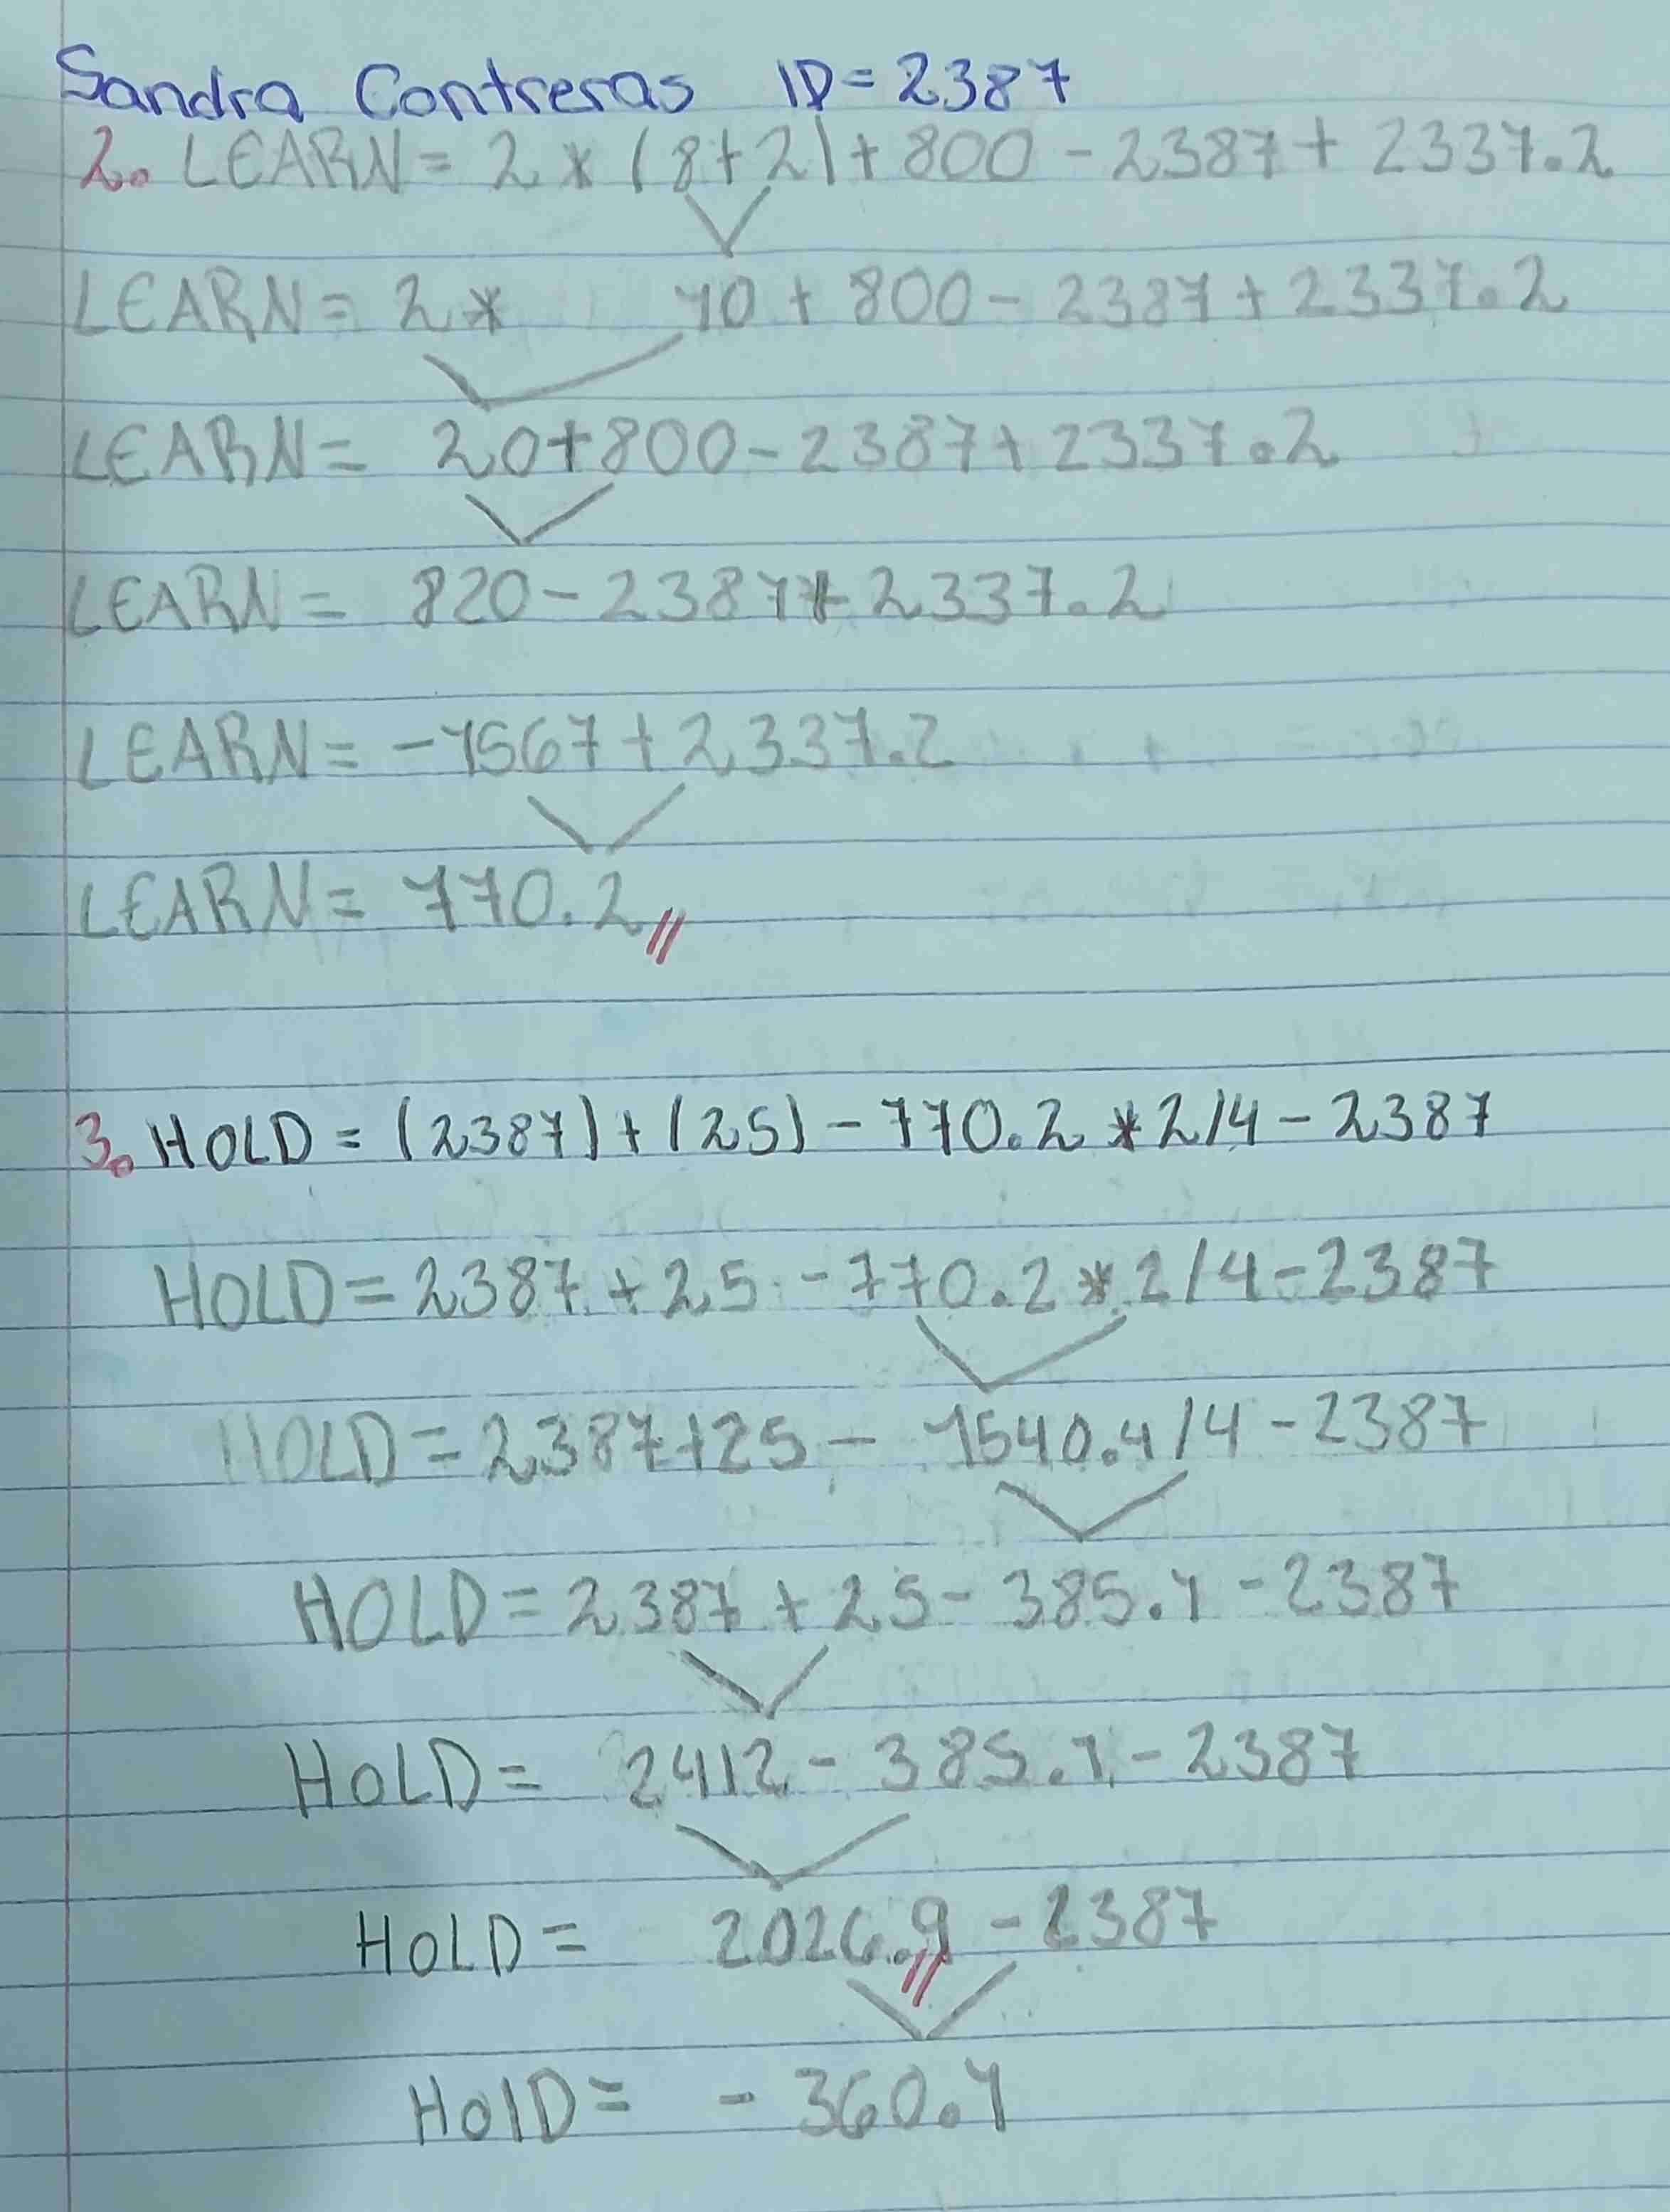 Sandra Contreras ID=2387
2. LEARN= 2 * (8+2)+800-2387+2337.2
LEARN= 2* 10+800-2387+2337.2
LEARN= 20+800-2387+2337.2
LEARN= 820-2387+2337.2
LEARN= -1567+2337.2
LEARN= 770.2
3. HOLD=(2387)+(25)-770.2*2/4-2387
HOLD=2387+25-770.2*2/4-2387
HOLD=2387+25-1540.4/4-2387
HOLD=2387+25-385.1-2387
HOLD= 2412-385.1-2387
HOLD= 2026.9-2387
HOLD= -360.1